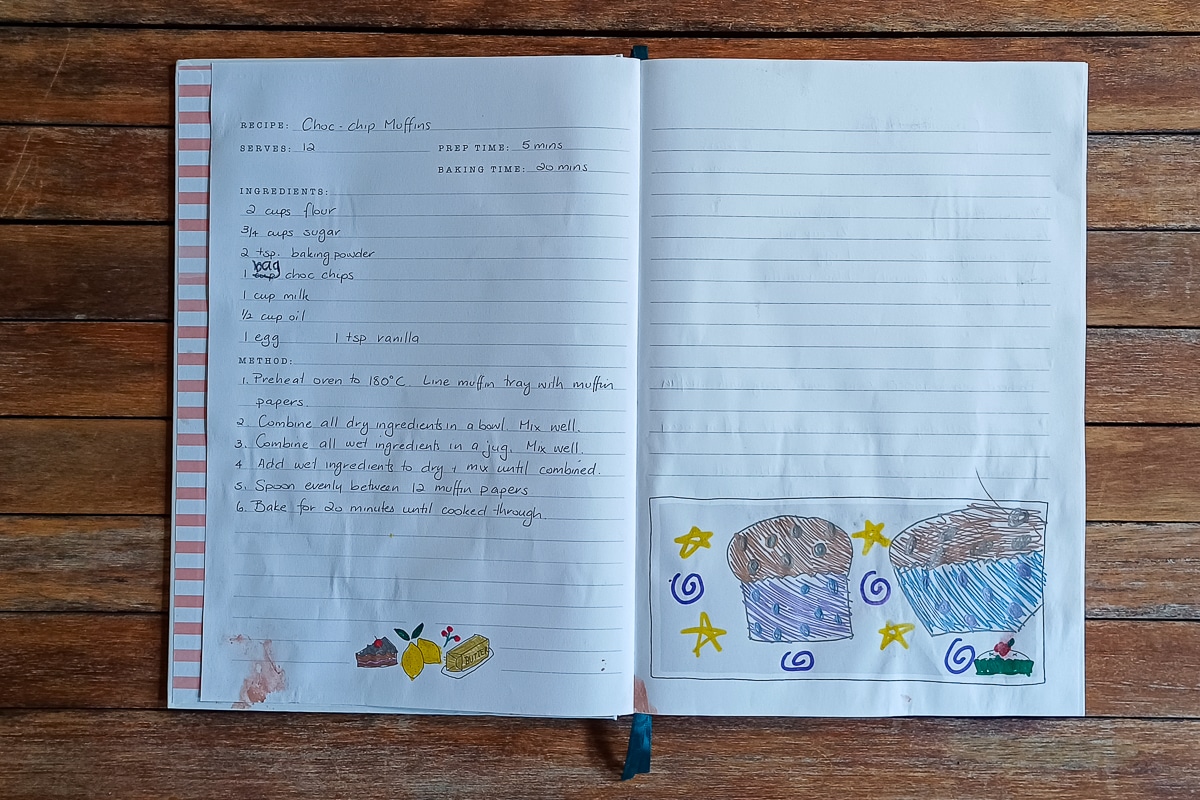 RECIPE: Choc-chip Muffins
SERVES: 12 PREP TIME: 5 mins
BAKING TIME: 20 mins
INGREDIENTS:
2 cups flour
3/4 cups sugar
2 tsp. baking powder
1 bag choc chips
1 cup milk
1/2 cup oil
1 egg 1 tsp vanilla
METHOD:
1. Preheat oven to 180°C. Line muffin tray with muffin
papers.
2. Combine all dry ingredients in a bowl. Mix well.
3. Combine all wet ingredients in a jug. Mix well.
4 Add wet ingredients to dry + mix until combined.
5. Spoon evenly between 12 muffin papers
6. Bake for 20 minutes until cooked through.
BUTTER